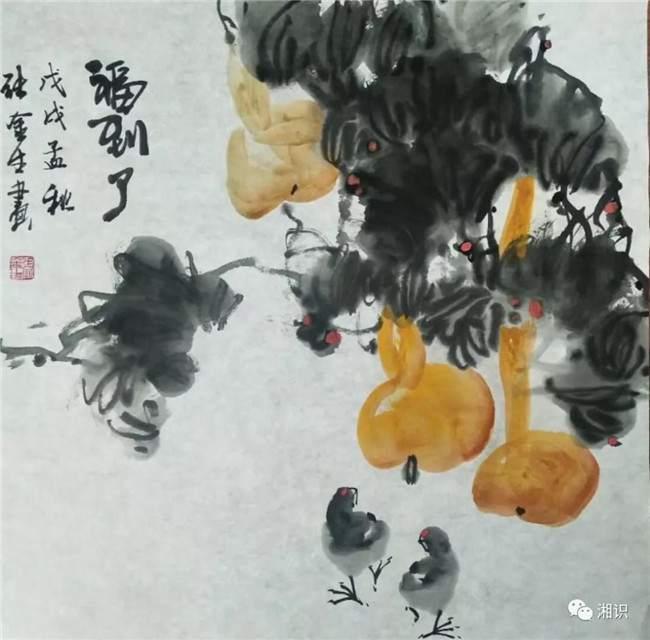 福到了
戊戌孟秋
张金生畫
湘识